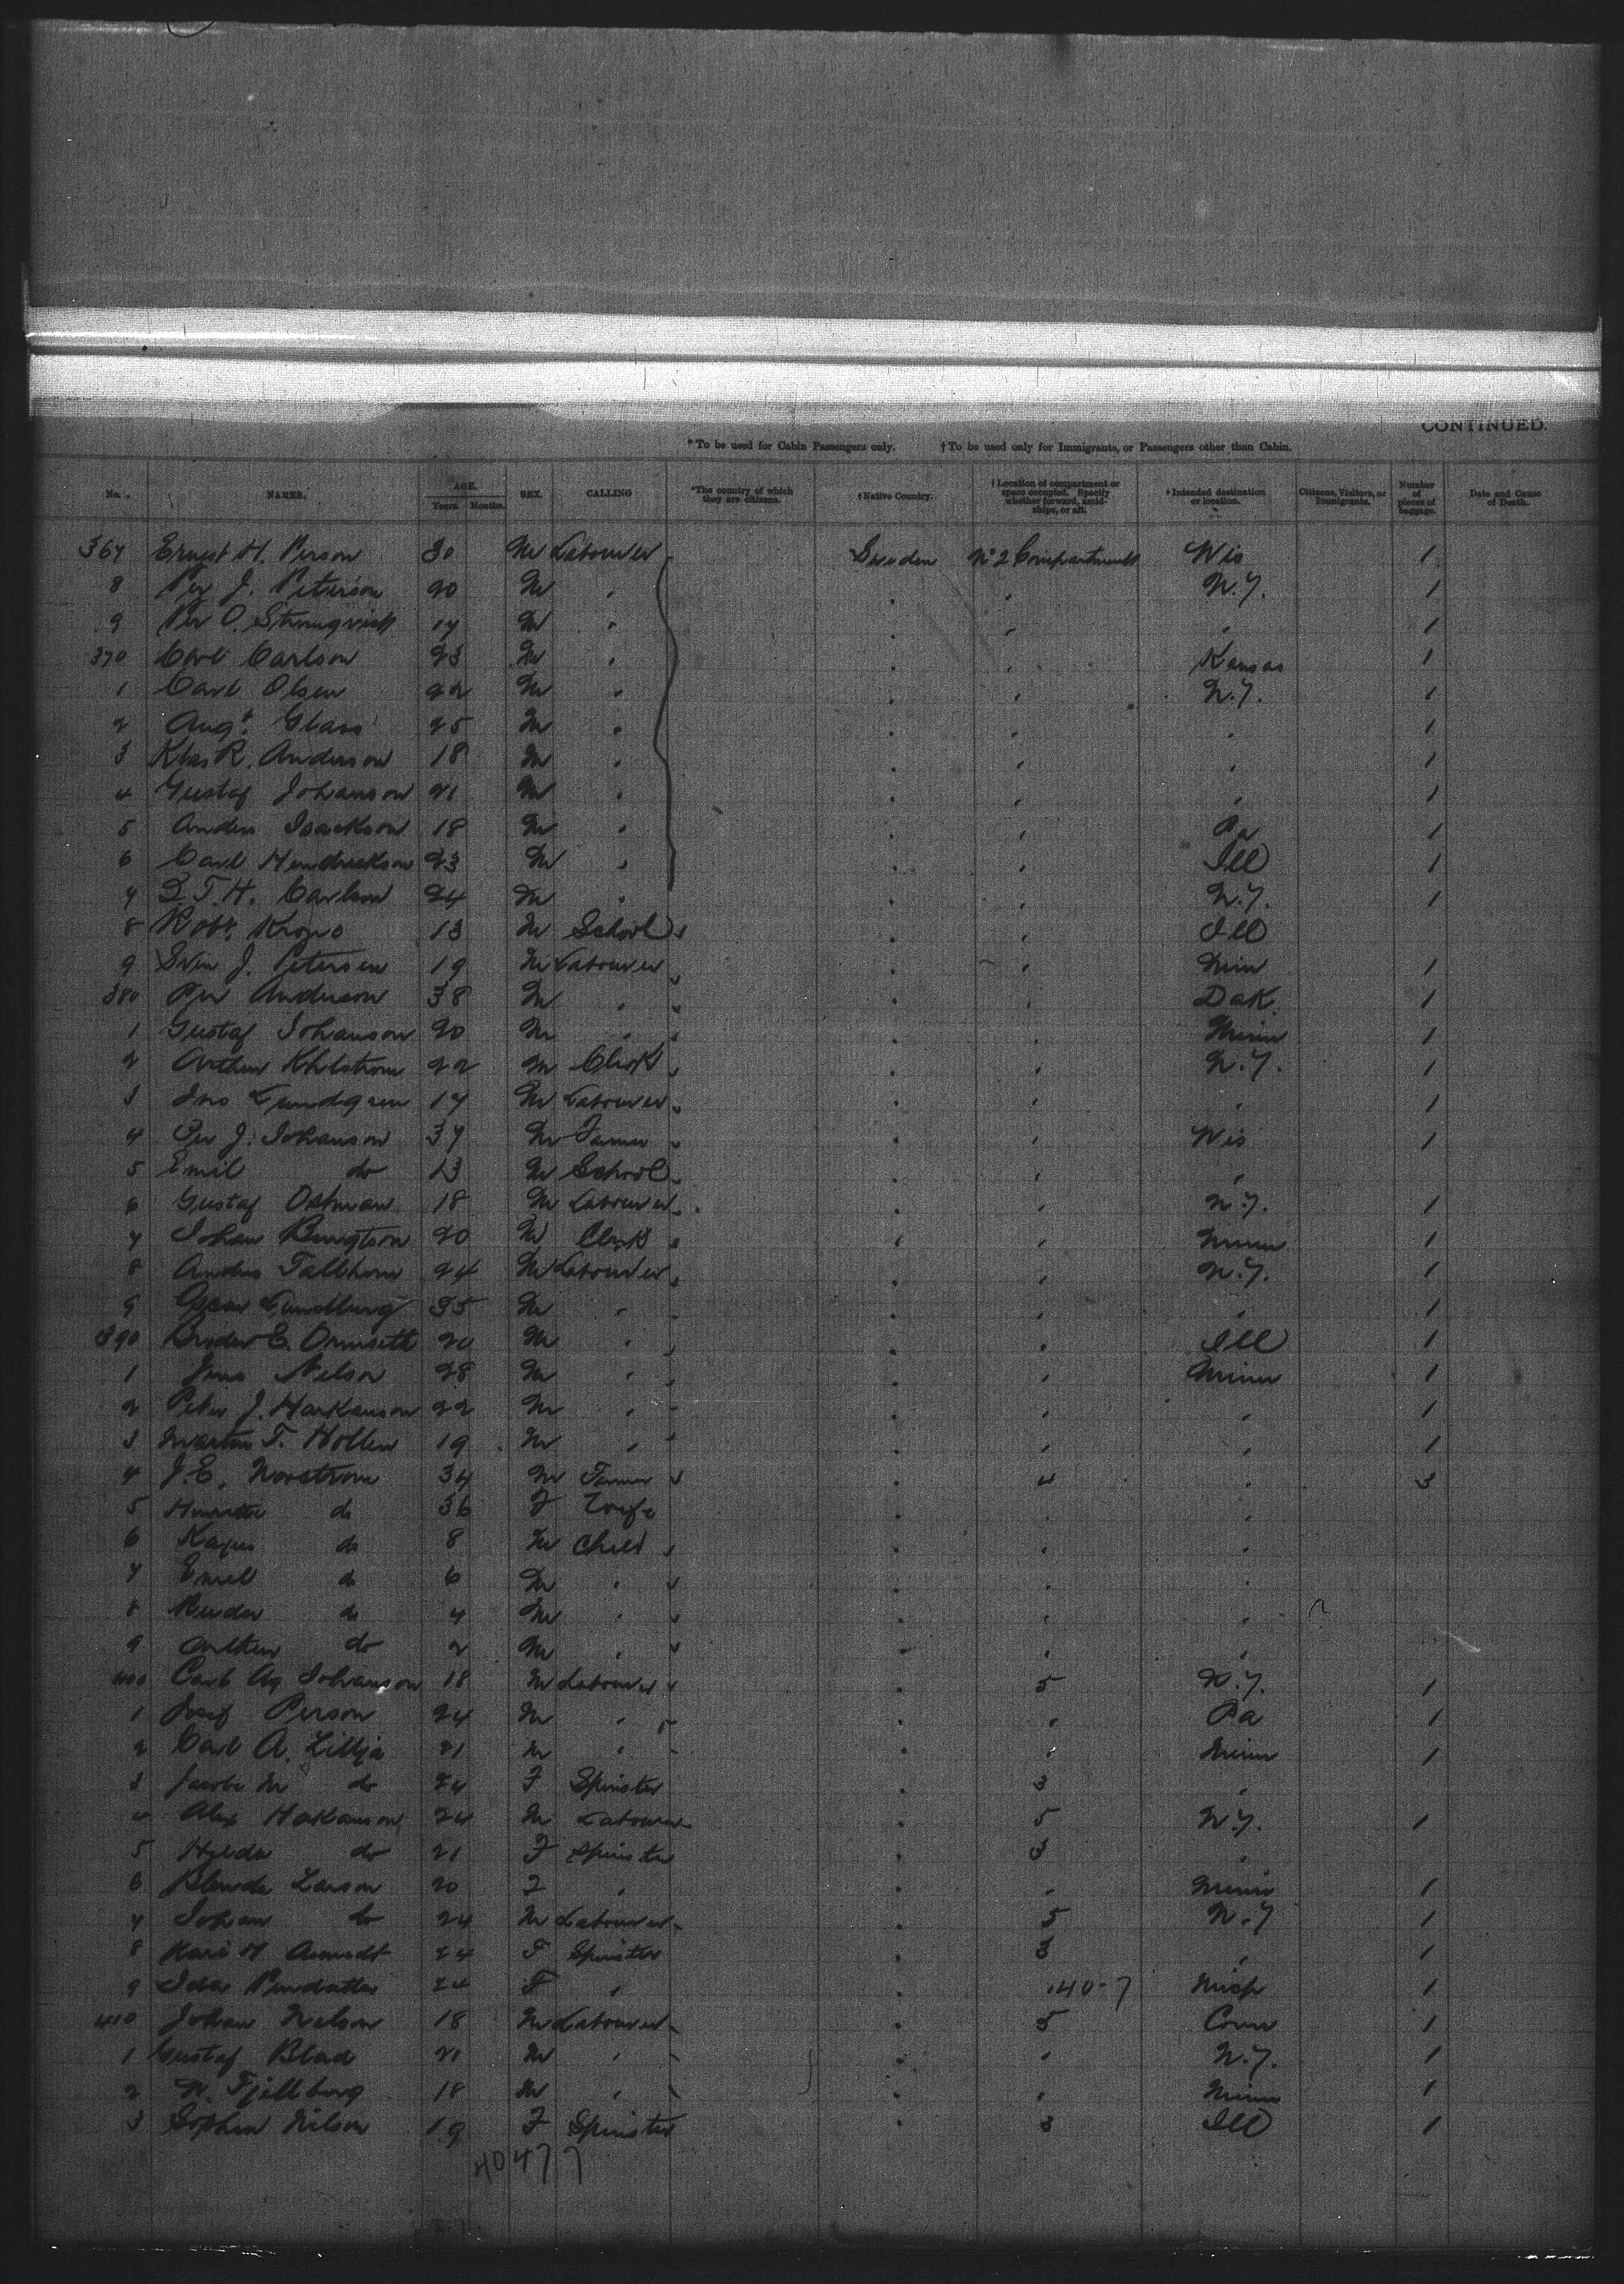 CONTINUED.
*To be used for Cabin Passengers only. †To be used only for Immigrants, or Passengers other than Cabin.
No. NAMES. AGE. Years. Months. SEX. CALLING *The country of which they are citizens. †Native Country. †Location of compartment or space occupied. Specify whether forward, amidships, or aft. *Intended destination or location. Citizens, Visitors, or Immigrants. Number of pieces of baggage. Date and Cause of Death.
367 Ernest H. Person 30 M Labourer Sweden No 2 Compartment Wis 1
8 Per J. Peterson 20 M " " " N.Y. 1
9 Per O. 17 M " " " " 1
370 Carl Carlson 23 M " " " Kansas 1
1 Carl Olsen 22 M " " " N.Y. 1
2 Augt. Glass 25 M " " " " 1
3 Klas R. Anderson 18 M " " " " 1
4 Gustaf Johanson 21 M " " " " 1
5 Anders Isackson 18 M " " " Pa 1
6 Carl Hendrickson 23 M " " " Ill 1
7 T. H. Carlson 24 M " " " N.Y. 1
8 Robt. Krono 13 M School " " Ill
9 Sven J. Petersen 19 M Labourer " " Minn 1
380 Per Anderson 38 M " " " Dak. 1
1 Gustaf Johanson 20 M " " " Minn 1
2 Arthur 22 M Clerk " " N.Y. 1
3 Jno Lundgren 17 M Labourer " " " 1
4 Per J. Johanson 37 M Farmer " " Wis 1
5 Emil do 13 M School " " "
6 Gustaf Ostman 18 M Labourer " " N.Y. 1
7 Johan Bengtson 20 M Clerk " " Minn 1
8 Anders 24 M Labourer " " N.Y. 1
9 Oscar Lundberg 35 M " " " " 1
390 E. Ormseth 20 M " " " Ill 1
1 Jens Nelson 28 M " " " Minn 1
2 Peter J. Harkanson 22 M " " " " 1
3 Martin T. Hollen 19 M " " " " 1
4 J. E. Norstrom 34 M Farmer " 4 " 3
5 do 36 F Wife " " "
6 do 8 M Child " " "
7 Emil do 6 M " " " "
8 do 4 M " " " "
9 Arthur do 2 M " " " "
400 Carl Ag Johanson 18 M Labourer " 5 N.Y. 1
1 Josef Person 24 M " " " Pa 1
2 Carl A. Lillja 21 M " " " Minn 1
3 M do 24 F Spinster " 3 "
4 Alex Hakanson 24 M Labourer " 5 N.Y. 1
5 Hilda do 21 F Spinster " 3 "
6 Blenda Larson 20 F " " " Minn 1
7 Johan do 24 M Labourer " 5 N.Y 1
8 24 F Spinster " 3 " 1
9 Ida 24 F " 140-7 Mich 1
410 Johan Nelson 18 M Labourer " 5 Conn 1
1 Gustaf Blad 21 M " " " N.Y. 1
2 N. Fjellborg 18 M " " " Minn 1
3 Sophia Nilson 19 F Spinster " 3 Ill 1